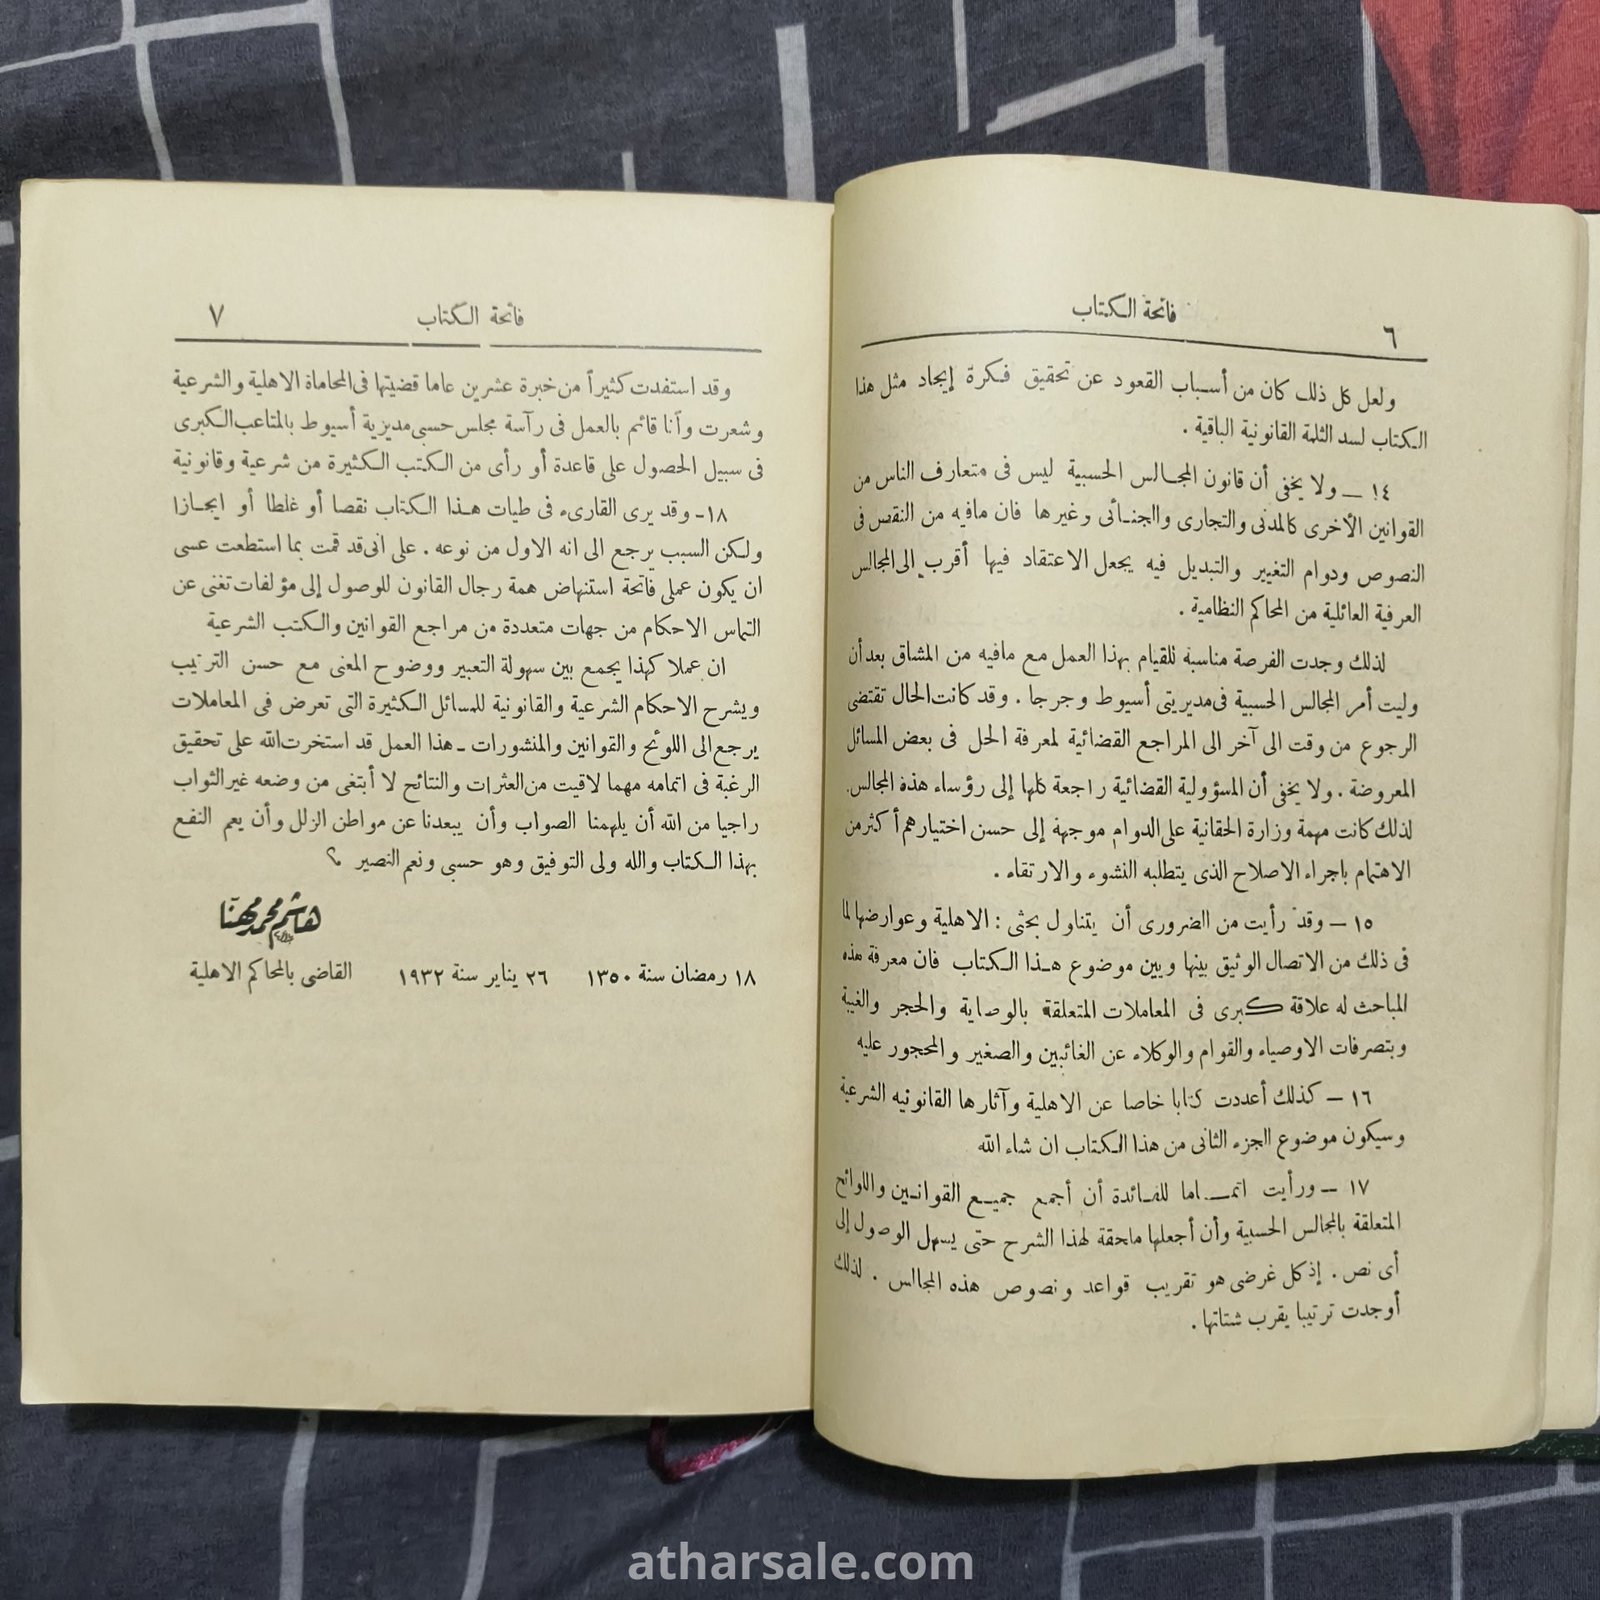 فاتحة الكتاب
٦
ولعل كل ذلك كان من أسباب القعود عن تحقيق فكرة إيجاد مثل هذا
الكتاب لسد الثلمة القانونية الباقية .
١٤ — ولا يخفى أن قانون المجالس الحسبية ليس فى متعارف الناس من
القوانين الأخرى كالمدنى والتجارى والجنائى وغيرها فان مافيه من النقص فى
النصوص ودوام التغيير والتبديل فيه يجعل الاعتقاد فيها أقرب الى المجالس
العرفية العائلية من المحاكم النظامية .
لذلك وجدت الفرصة مناسبة للقيام بهذا العمل مع مافيه من المشاق بعد أن
وليت أمر المجالس الحسبية فى مديريتى أسيوط وجرجا . وقد كانت الحال تقتضى
الرجوع من وقت الى آخر الى المراجع القضائية لمعرفة الحل فى بعض المسائل
المعروضة . ولا يخفى أن المسؤولية القضائية راجعة كلها إلى رؤساء هذه المجالس
لذلك كانت مهمة وزارة الحقانية على الدوام موجهة إلى حسن اختيارهم أكثر من
الاهتمام باجراء الاصلاح الذى يتطلبه النشوء والارتقاء .
١٥ — وقد رأيت من الضرورى أن يتناول بحثى : الاهلية وعوارضها لما
فى ذلك من الاتصال الوثيق بينها وبين موضوع هذا الكتاب فان معرفة هذه
المباحث له علاقة كبرى فى المعاملات المتعلقة بالوصاية والحجر والغيبة
وبتصرفات الاوصياء والقوام والوكلاء عن الغائبين والصغير والمحجور عليه
١٦ — كذلك أعددت كتابا خاصا عن الاهلية وآثارها القانونيه الشرعية
وسيكون موضوع الجزء الثانى من هذا الكتاب ان شاء الله
١٧ — ورأيت اتماما للفائدة أن أجمع جميع القوانين واللوائح
المتعلقة بالمجالس الحسبية وأن أجعلها ملحقة لهذا الشرح حتى يسهل الوصول إلى
أى نص . إذ كل غرضى هو تقريب قواعد ونصوص هذه المجالس . لذلك
أوجدت ترتيبا يقرب شتاتها .
فاتحة الكتاب
٧
وقد استفدت كثيراً من خبرة عشرين عاما قضيتها فى المحاماة الاهلية والشرعية
وشعرت وأنا قائم بالعمل فى رآسة مجلس حسبى مديرية أسيوط بالمتاعب الكبرى
فى سبيل الحصول على قاعدة أو رأى من الكتب الكثيرة من شرعية وقانونية
١٨- وقد يرى القارىء فى طيات هذا الكتاب نقصا أو غلطا أو ايجازا
ولكن السبب يرجع الى انه الاول من نوعه . على انى قد قمت بما استطعت عسى
ان يكون عملى فاتحة استنهاض همة رجال القانون للوصول إلى مؤلفات تغنى عن
التماس الاحكام من جهات متعددة من مراجع القوانين والكتب الشرعية
ان عملا كهذا يجمع بين سهولة التعبير ووضوح المعنى مع حسن الترتيب
ويشرح الاحكام الشرعية والقانونية للمسائل الكثيرة التى تعرض فى المعاملات
يرجع الى اللوئح والقوانين والمنشورات ـ هذا العمل قد استخرت الله على تحقيق
الرغبة فى اتمامه مهما لاقيت من العثرات والنتائج لا أبتغى من وضعه غير الثواب
راجيا من الله أن يلهمنا الصواب وأن يبعدنا عن مواطن الزلل وأن يعم النفع
بهذا الكتاب والله ولى التوفيق وهو حسبى ونعم النصير
هاشم محمد مهنا
القاضى بالمحاكم الاهلية
١٨ رمضان سنة ١٣٥٠ ٢٦ يناير سنة ١٩٣٢
atharsale.com